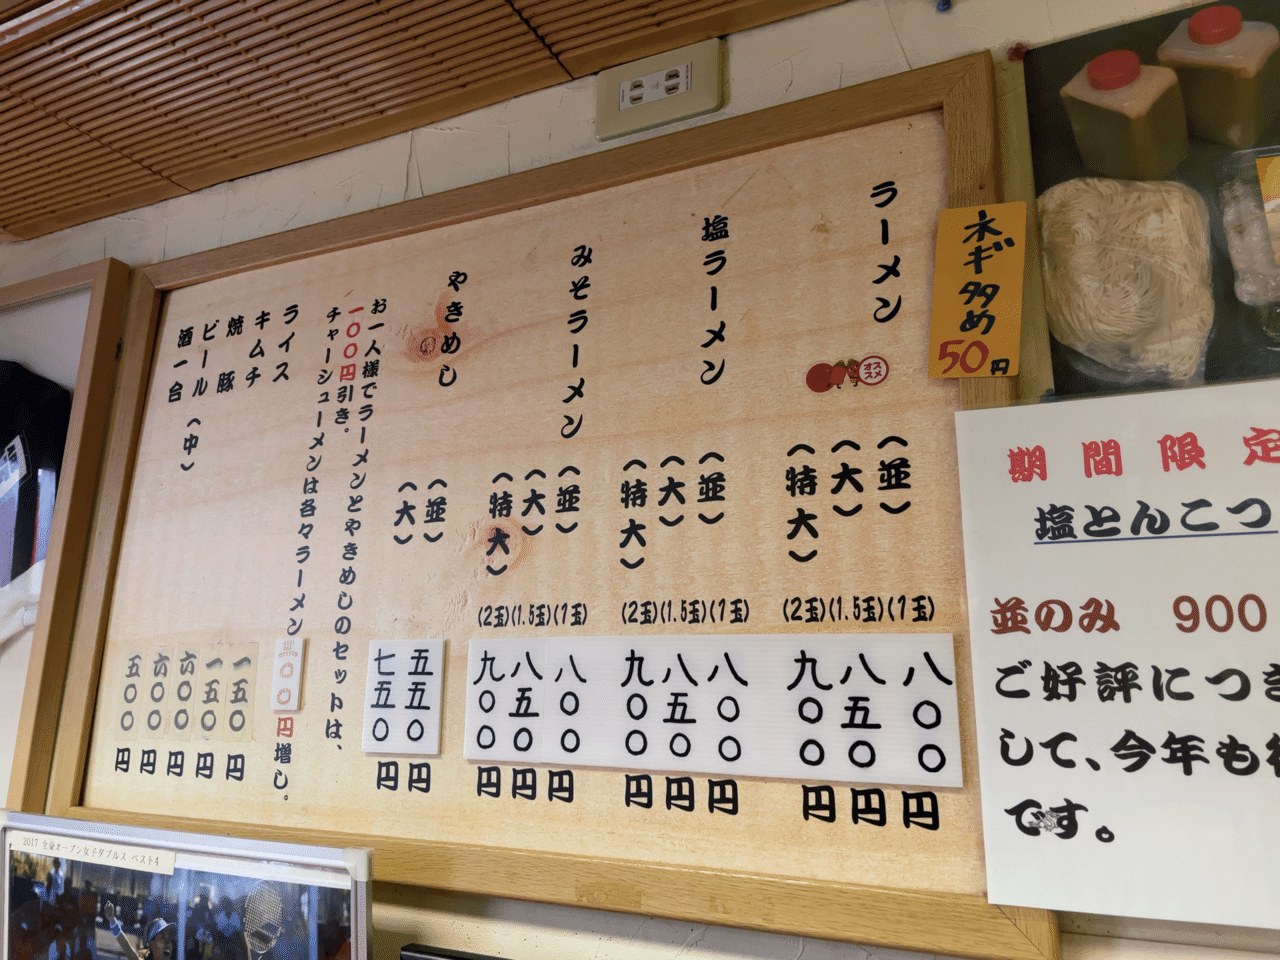 ネギ多め
50円
ラーメン
オススメ
(並) (1玉) 八〇〇円
(大) (1.5玉) 八五〇円
(特大) (2玉) 九〇〇円
塩ラーメン
(並) (1玉) 八〇〇円
(大) (1.5玉) 八五〇円
(特大) (2玉) 九〇〇円
みそラーメン
(並) (1玉) 八〇〇円
(大) (1.5玉) 八五〇円
(特大) (2玉) 九〇〇円
やきめし
(並) 五五〇円
(大) 七五〇円
お一人様でラーメンとやきめしのセットは、
一〇〇円引き。
チャーシューメンは各々ラーメン〇〇円増し。
ライス 一五〇円
キムチ 一五〇円
焼豚 六〇〇円
ビール(中) 六〇〇円
酒一合 五〇〇円
期間限定
塩とんこつ
並のみ 900
ご好評につき
して、今年も
です。
2017 全豪オープン女子ダブルス ベスト4